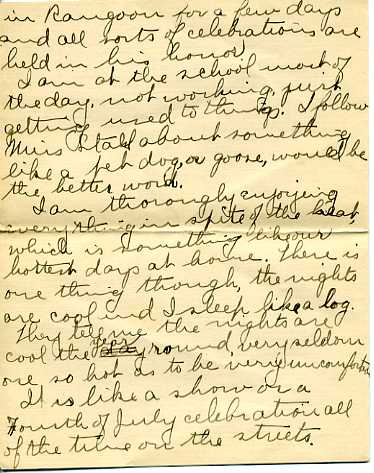 in Rangoon for a few days
and all sorts of celebrations are
held in his honor.
I am at the school most of
the day, not working, just
getting used to things. I follow
Miss about something
like a pet dog, or goose, would be
the better word.
I am thoroughly enjoying
everything in spite of the heat
which is something like our
hottest days at home. There is
one thing through, the nights
are cool and I sleep like a log.
They tell me the nights are
cool the year round, very seldom
one, so hot as to be very uncomfortable
It is like a show or a
Fourth of July celebration all
of the time on the streets.